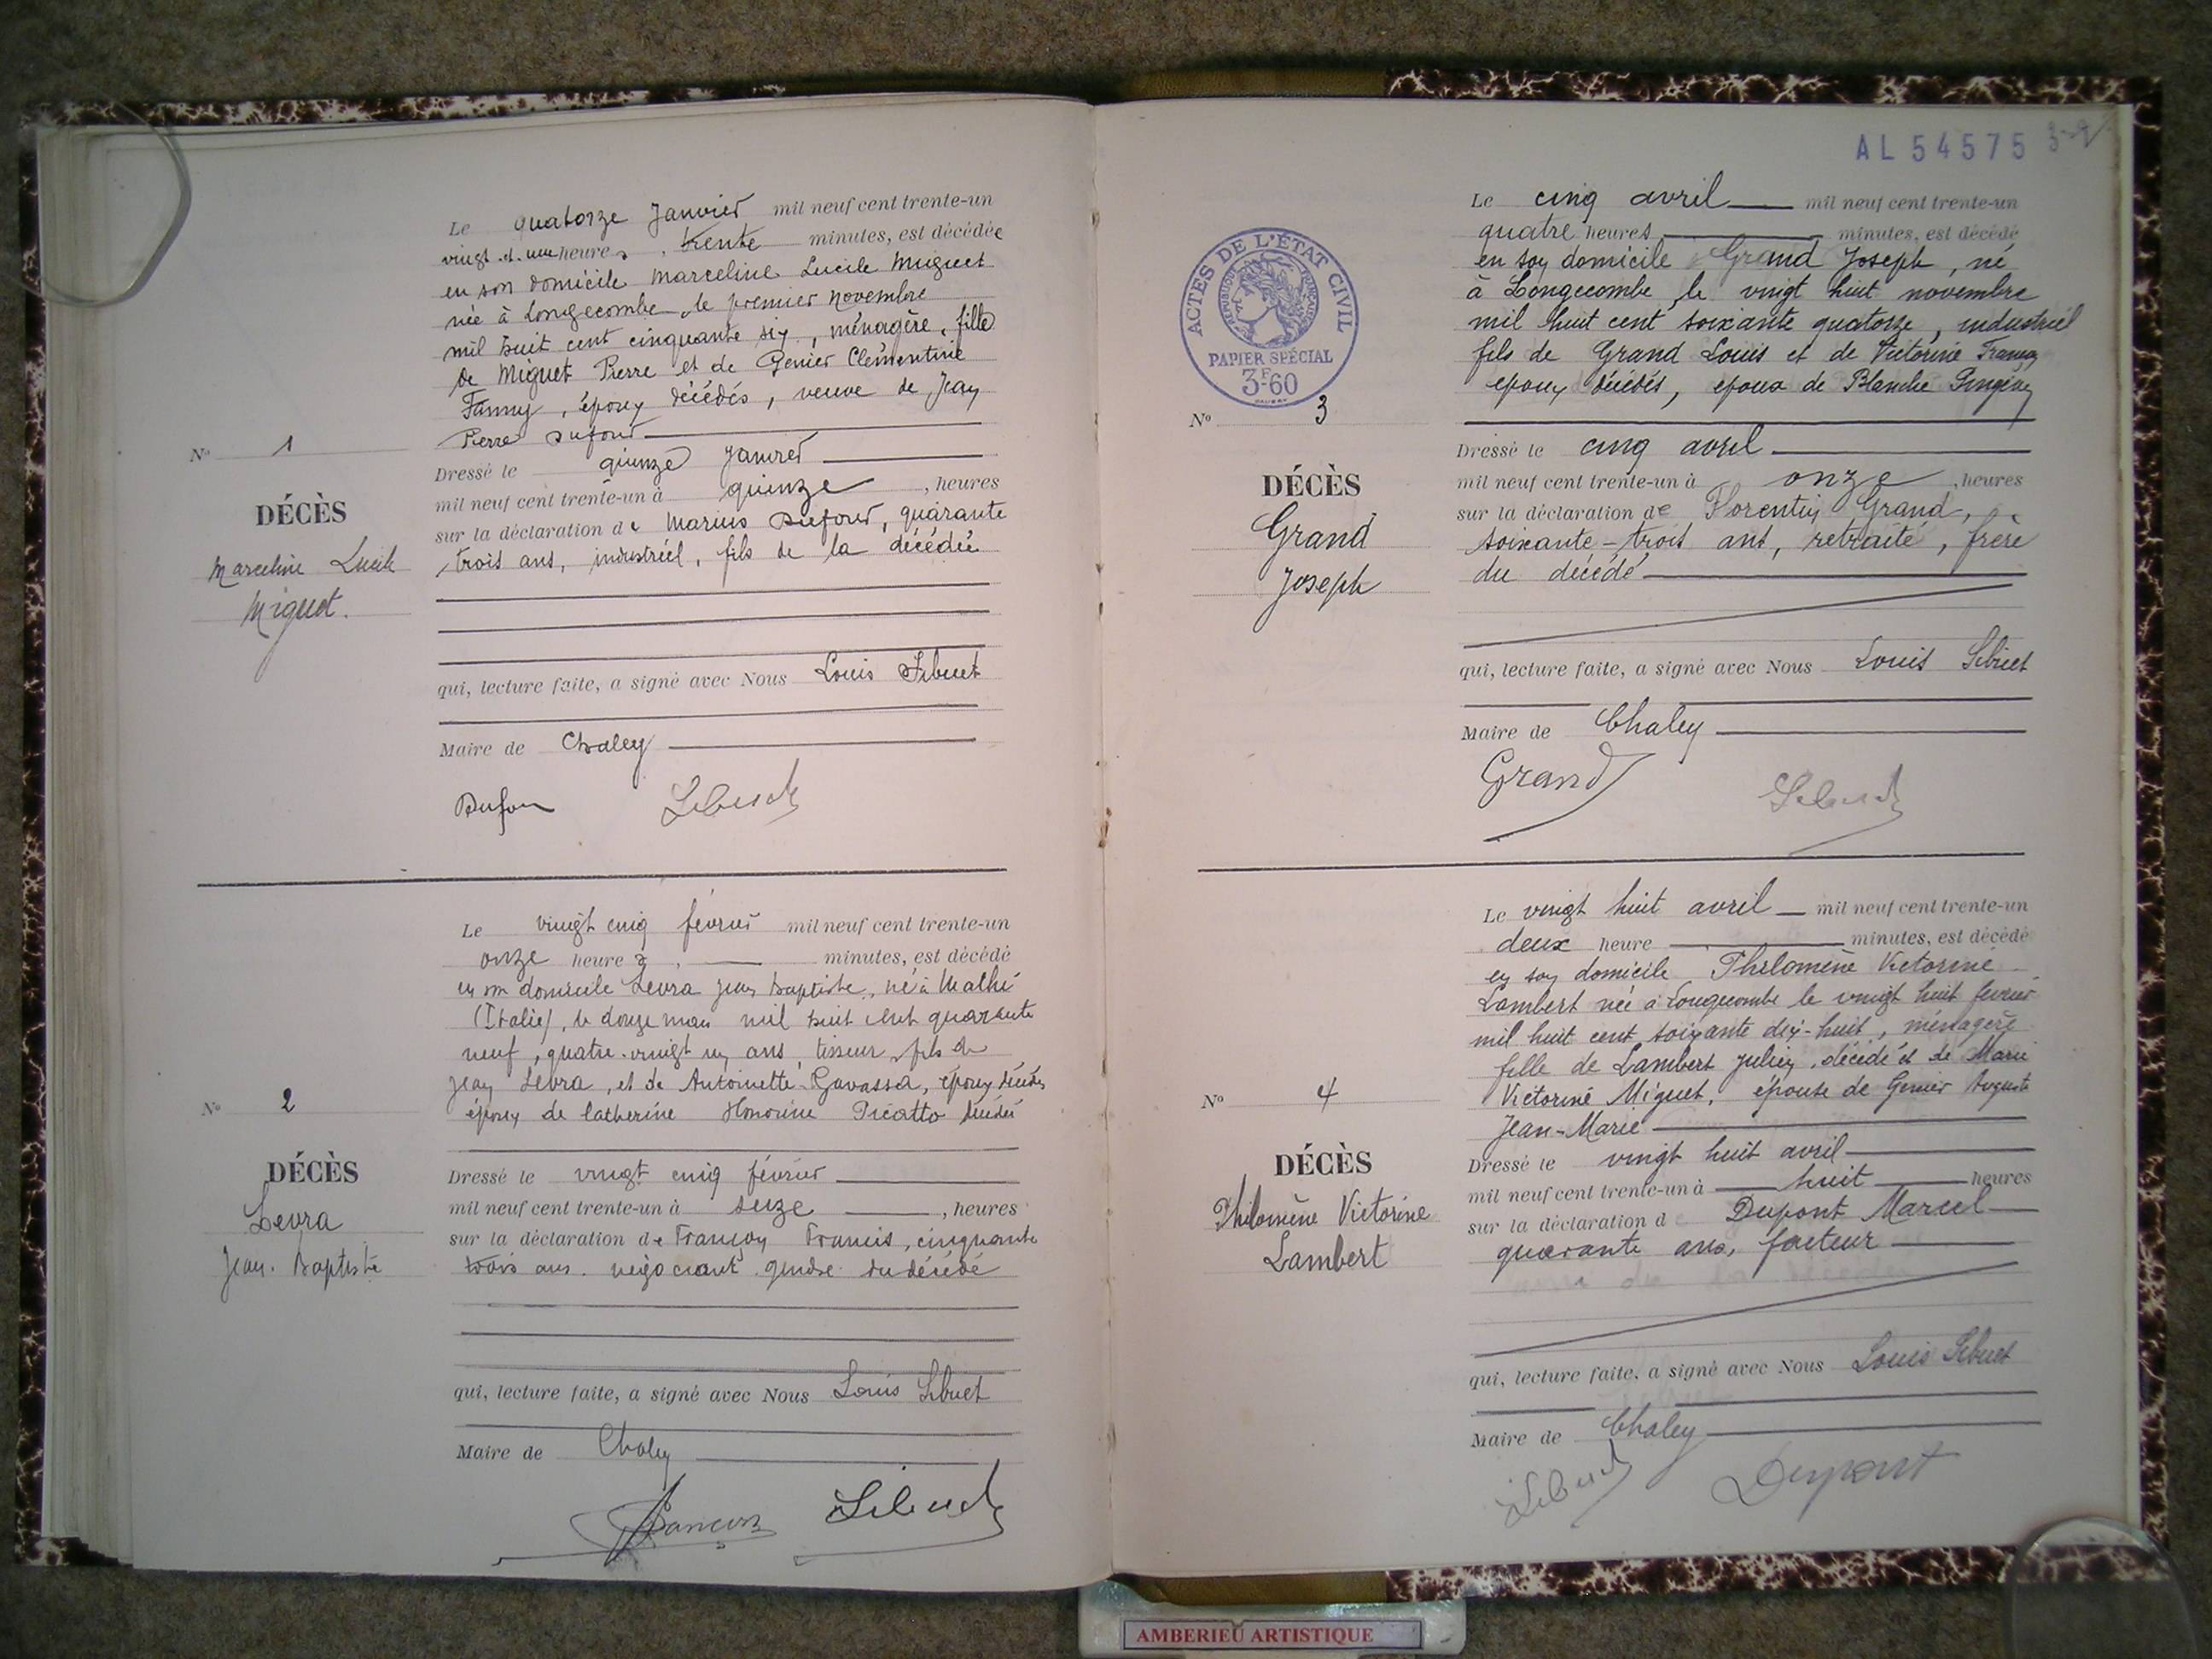 Le quatorze Janvier mil neuf cent trente-un
vingt et une heures, trente minutes, est décédée
en son domicile Marceline Lucile Miguet
née à Longecombe, le premier novembre
mil huit cent cinquante six, ménagère, fille
de Miguet Pierre et de Genier Clémentine
Fanny, époux décédés, veuve de Jean
Pierre Dufour
N° 1
DÉCÈS
Marceline Lucile
Miguet.
Dressé le quinze janvier
mil neuf cent trente-un à quinze, heures
sur la déclaration de Marius Dufour, quarante
trois ans, industriel, fils de la décédée
qui, lecture faite, a signé avec Nous Louis Sibuet
Maire de Chaley
Dufour Sibuet
Le vingt cinq février mil neuf cent trente-un
onze heures, minutes, est décédé
en son domicile Levra Jean Baptiste, né à Mathi
(Italie), le douze mars mil huit cent quarante
neuf, quatre-vingt un ans, tisseur, fils de
Jean Levra, et de Antoinette Gavassa, époux décédés
époux de Catherine Honorine Picatto décédée
N° 2
DÉCÈS
Levra
Jean-Baptiste
Dressé le vingt cinq février
mil neuf cent trente-un à seize, heures
sur la déclaration de Françon Francis, cinquante
trois ans, négociant, gendre du décédé
qui, lecture faite, a signé avec Nous Louis Sibuet
Maire de Chaley
Françon Sibuet
AL 54575
ACTES DE L'ÉTAT CIVIL
RÉPUBLIQUE FRANÇAISE
PAPIER SPÉCIAL
3F60
Le cinq avril mil neuf cent trente-un
quatre heures minutes, est décédé
en son domicile Grand Joseph, né
à Longecombe, le vingt huit novembre
mil huit cent soixante quatorze, industriel
fils de Grand Louis et de Victorine
époux décédés, époux de Blanche
N° 3
DÉCÈS
Grand
Joseph
Dressé le cinq avril
mil neuf cent trente-un à onze, heures
sur la déclaration de Florentin Grand,
soixante-trois ans, retraité, frère
du décédé
qui, lecture faite, a signé avec Nous Louis Sibuet
Maire de Chaley
Grand Sibuet
Le vingt huit avril mil neuf cent trente-un
deux heure minutes, est décédé
en son domicile Philomène Victorine
Lambert née à Longecombe le vingt huit février
mil huit cent soixante dix-huit, ménagère
fille de Lambert Julien, décédé et de Marie
Victorine Miguet, épouse de Genier Auguste
Jean-Marie
N° 4
DÉCÈS
Philomène Victorine
Lambert
Dressé le vingt huit avril
mil neuf cent trente-un à huit heures
sur la déclaration d Dupont Marcel
quarante ans, facteur
qui, lecture faite, a signé avec Nous Louis Sibuet
Maire de Chaley
Sibuet Dupont
AMBERIEU ARTISTIQUE